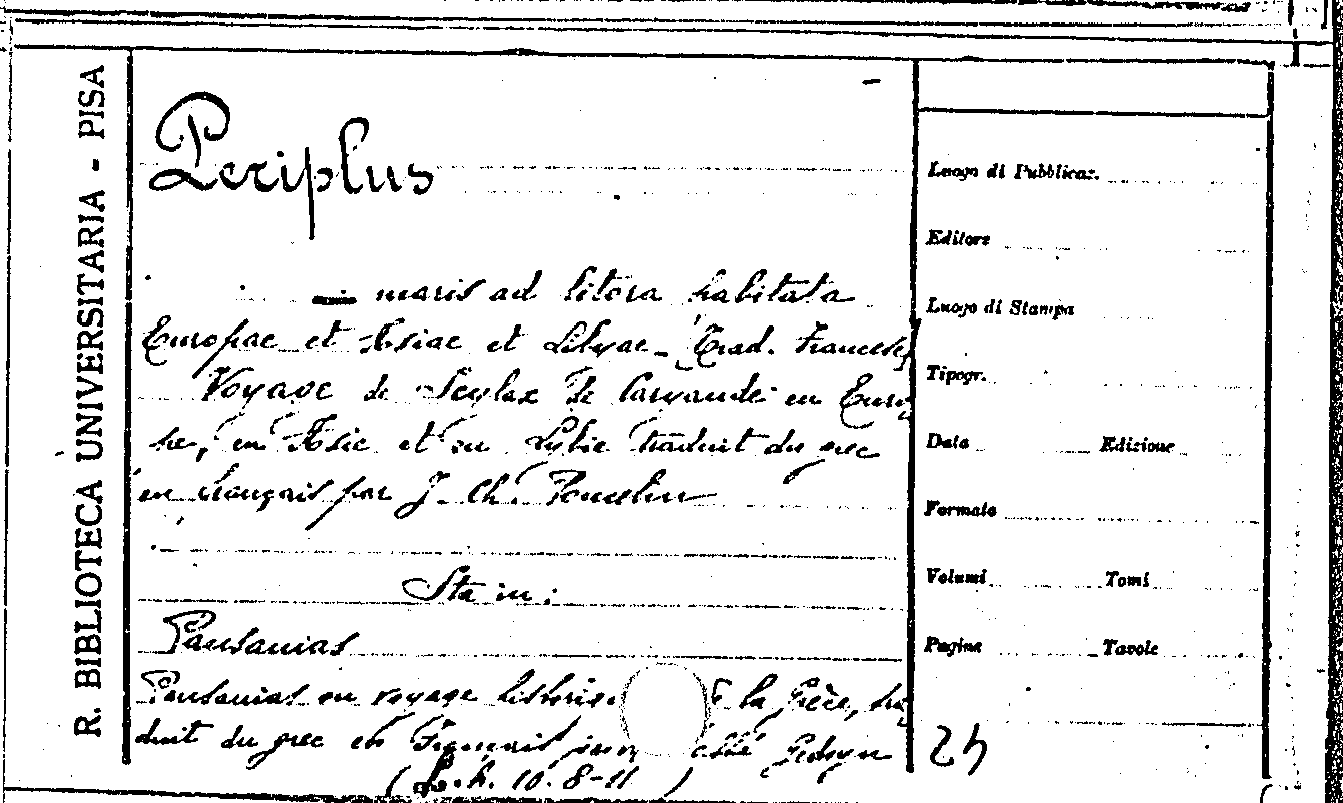 R. BIBLIOTECA UNIVERSITARIA - PISA
Periplus
maris ad litora habitata
Europae et Asiae et Libyae - [Trad. Francese]
Voyage de Scylax de Caryande en Euro-
pe, en Asie et en Lybie traduit du grec
en français par J. Ch. Poncelin
Sta in:
Pausanias
Pausanias ou voyage la Grèce, tra
duit du grec en Français Gedoyn
10. 8-11 )
Luogo di Pubblicaz.
Editore
Luogo di Stampa
Tipogr.
Data Edizione
Formato
Volumi Tomi
Pagine Tavole
24